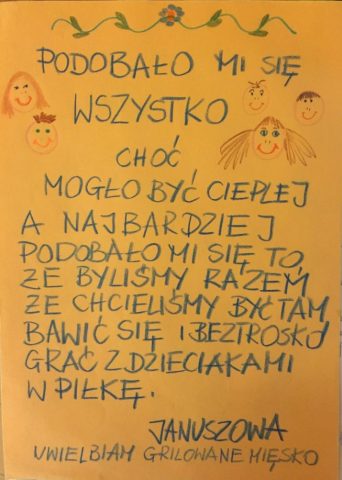 PODOBAŁO MI SIĘ
WSZYSTKO
CHOĆ
MOGŁO BYĆ CIEPLEJ
A NAJBARDZIEJ
PODOBAŁO MI SIĘ TO,
ŻE BYLIŚMY RAZEM
ŻE CHCIELIŚMY BYĆ TAM
BAWIĆ SIĘ I BEZTROSKO
GRAĆ Z DZIECIAKAMI
W PIŁKĘ.
JANUSZOWA
UWIELBIAM GRILOWANE MIĘSKO